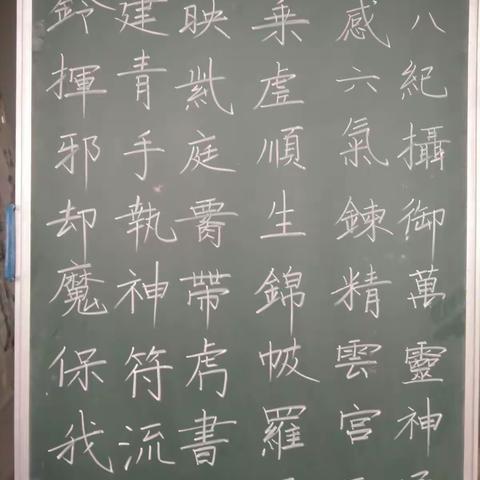 八紀攝御萬靈神
感六氣鍊精雲宮
乘虛順生錦帔羅
映紫庭帶虎書
建青手執神符流
鈴揮邪却魔保我